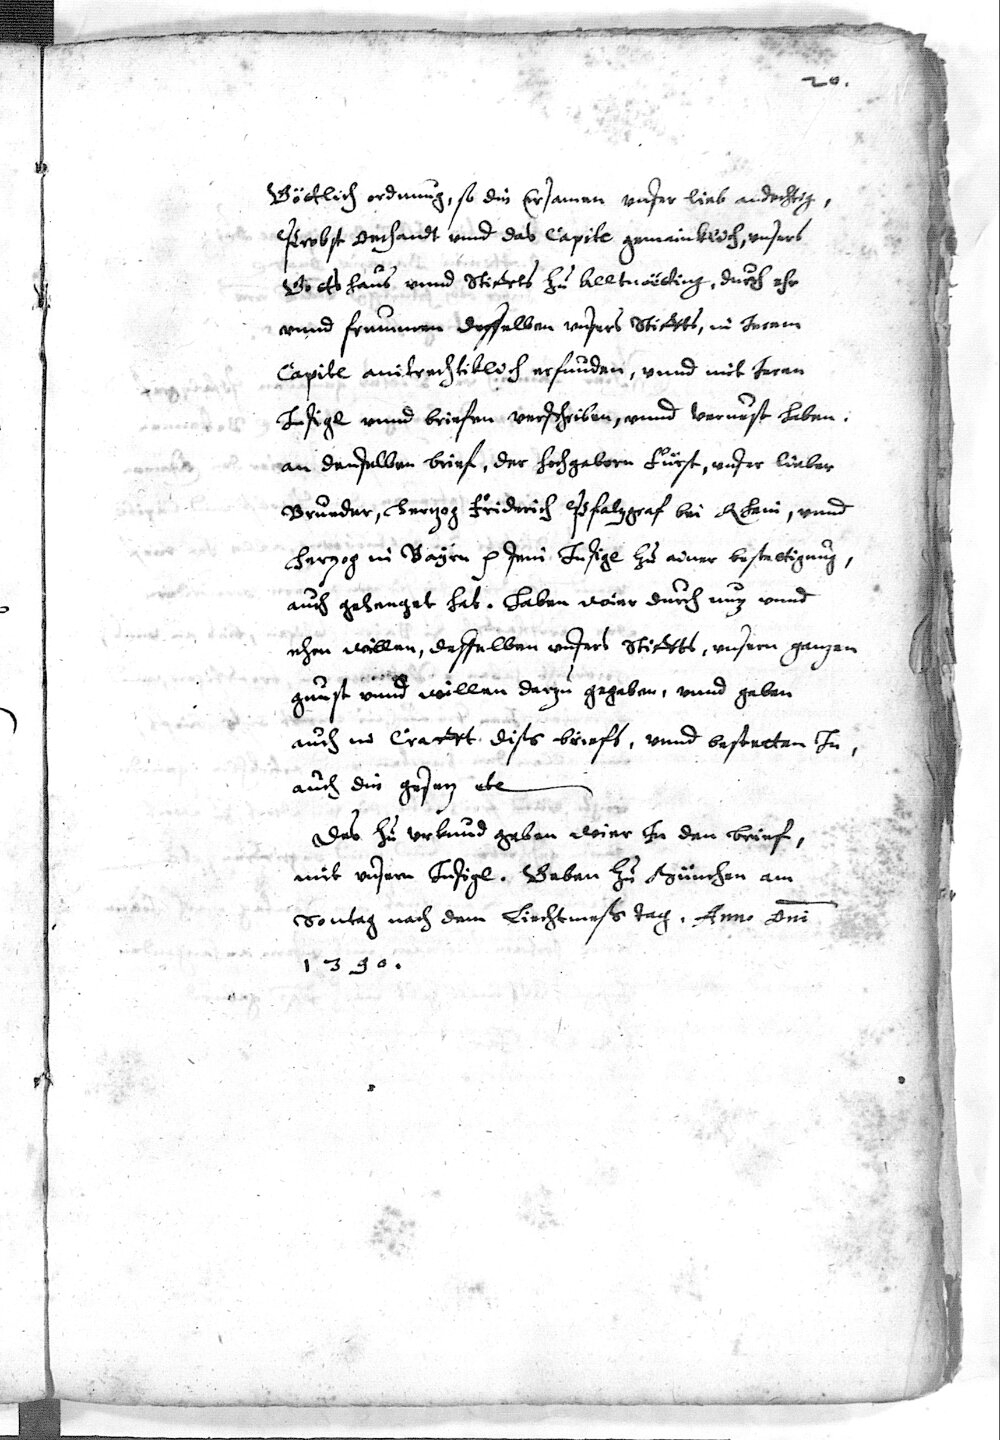 20.
Göttlich ordnung, so die Ersamen vnser lieb andechtig,
Probst Dechandt vnnd das Capitl gemaincklich, vnsers
Gotshaus vnnd Stiffts zu Alltnötting, durch ehr
vnnd frummen desselben vnsers Stiffts, in Irem
Capitl ainträchtiklich erfunden, vnnd mit Iren
Insigl vnnd briefen verschriben, vnnd veruest haben.
an denselben brief, der hochgeborn Fürst, vnser lieber
Brueder, Hertzog Friderich Pfaltzgraf bei Rhein, vnnd
Hertzog in Bayrn sein Insigl zu ainer bestettigung,
auch gehenget hat. Haben wier durch nuz vnnd
ehrn willen, desselben vnsers Stiffts, vnsern ganzen
gunst vnnd willen darzu gegeben, vnnd geben
auch in Crafft diss briefs, vnnd bestetten In,
auch die gesetz etc
Des zu vrkund geben wier In den brief,
mit vnserm Insigl. Geben zu München am
Sontag nach dem Liechtmess tag. Anno Dni
1390.